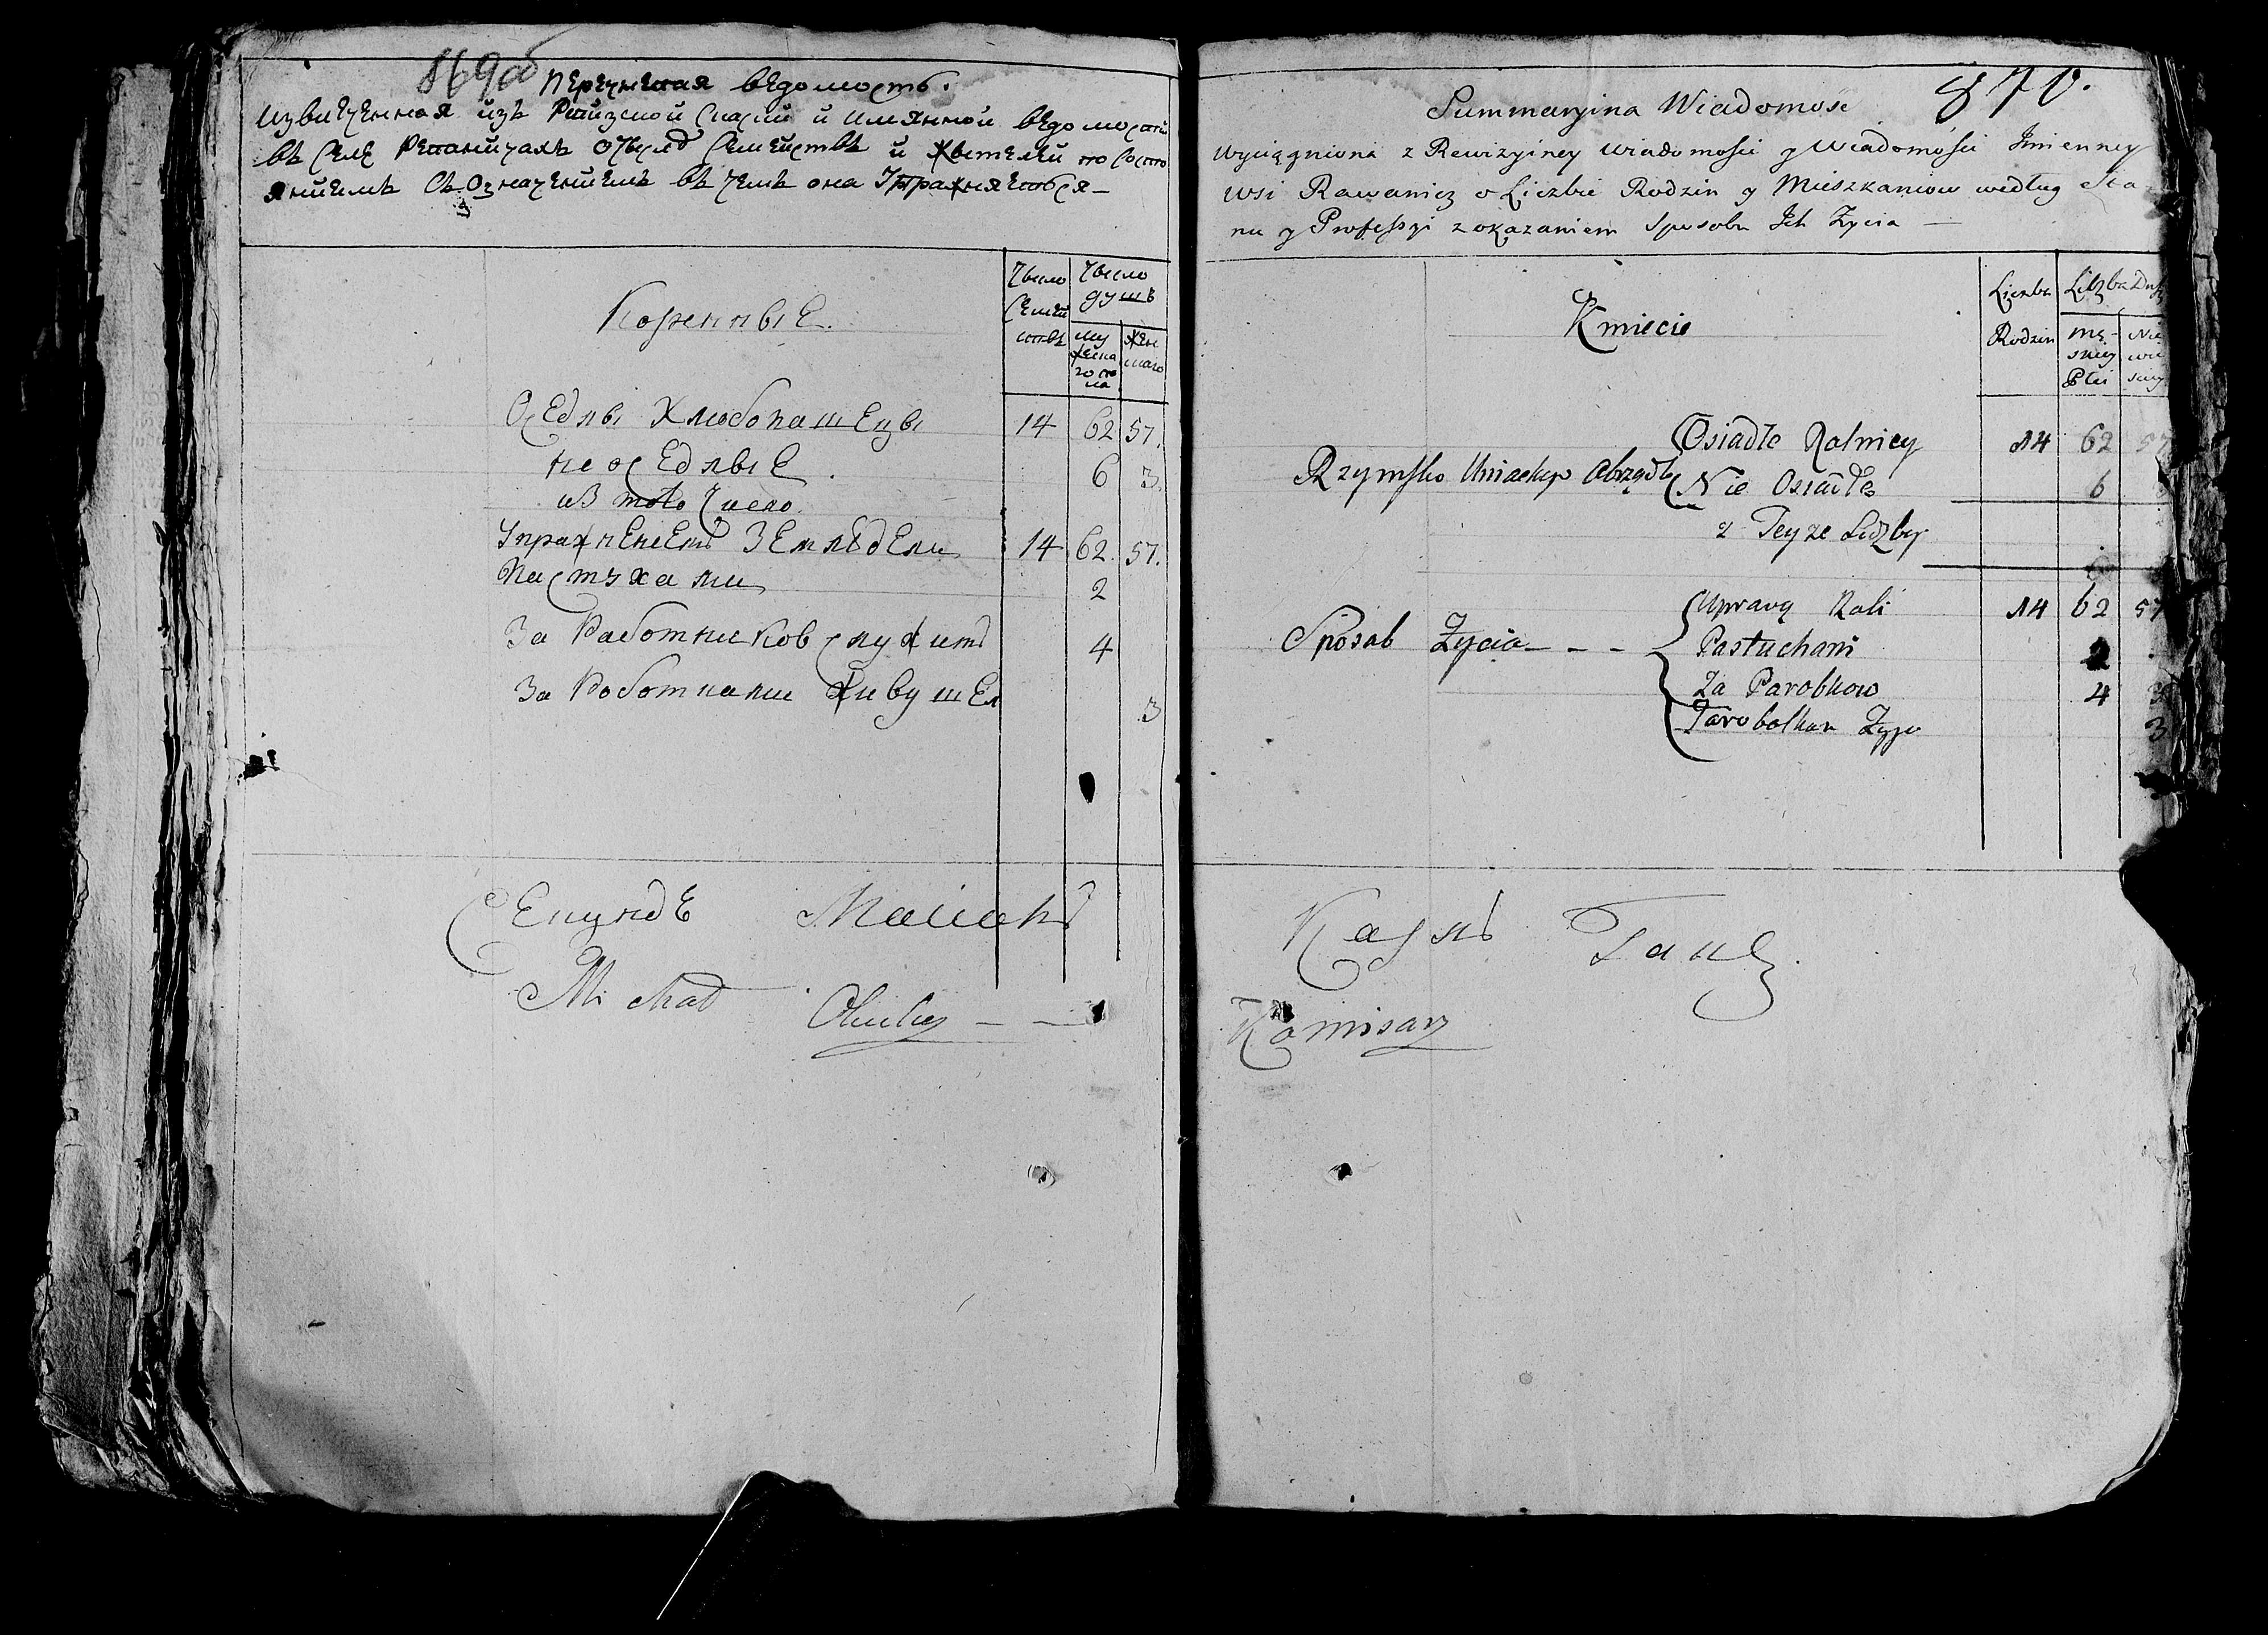 869об
Перечнестая ведомость.
Извлеченная изъ Ревизской Скаски и имянной ведомости
въ селе Реваничахъ о числе семействъ и жителей по состо
яниемъ съ означениемъ въ чемъ она упражняется
Коренные.
Число семей ствъ
Число душъ
му жеска го по ла
жен скаго
Оседлы Хлебопашецы 14 62 57.
не оседлые 6 3.
из того число.
Упражненеемъ Земледели 14 62. 57.
Пастухами 2
За Работников служитъ 4
За Роботнами живущея 3
Секундъ
Michał
870.
Summaryina Wiadomość
wyciągniona z Rewizyiney wiadomości y Wiadomości Jmienney
wsi Rawanicz o Liczbie Rodzin y Mieszkaniow według sta
nu y Professyi z okazaniem sposobu Ich Zycia —
Kmiecie
Liczba Rodzin
Liczba Dusz
mę- skiey Płci
Nie wie sciey
Osiadłe Rolnicy 14 62 57
Rzymsko Uniackego Obrządk Nie Osiadłe 6
z Teyże Liczby
Uprawą Roli 14 62 57
Sposob Zycia - - - Pastuchami 2
Za Parobkow 4
Parobolkan Zyje 3
Карлъ Ганц.
Komisarz